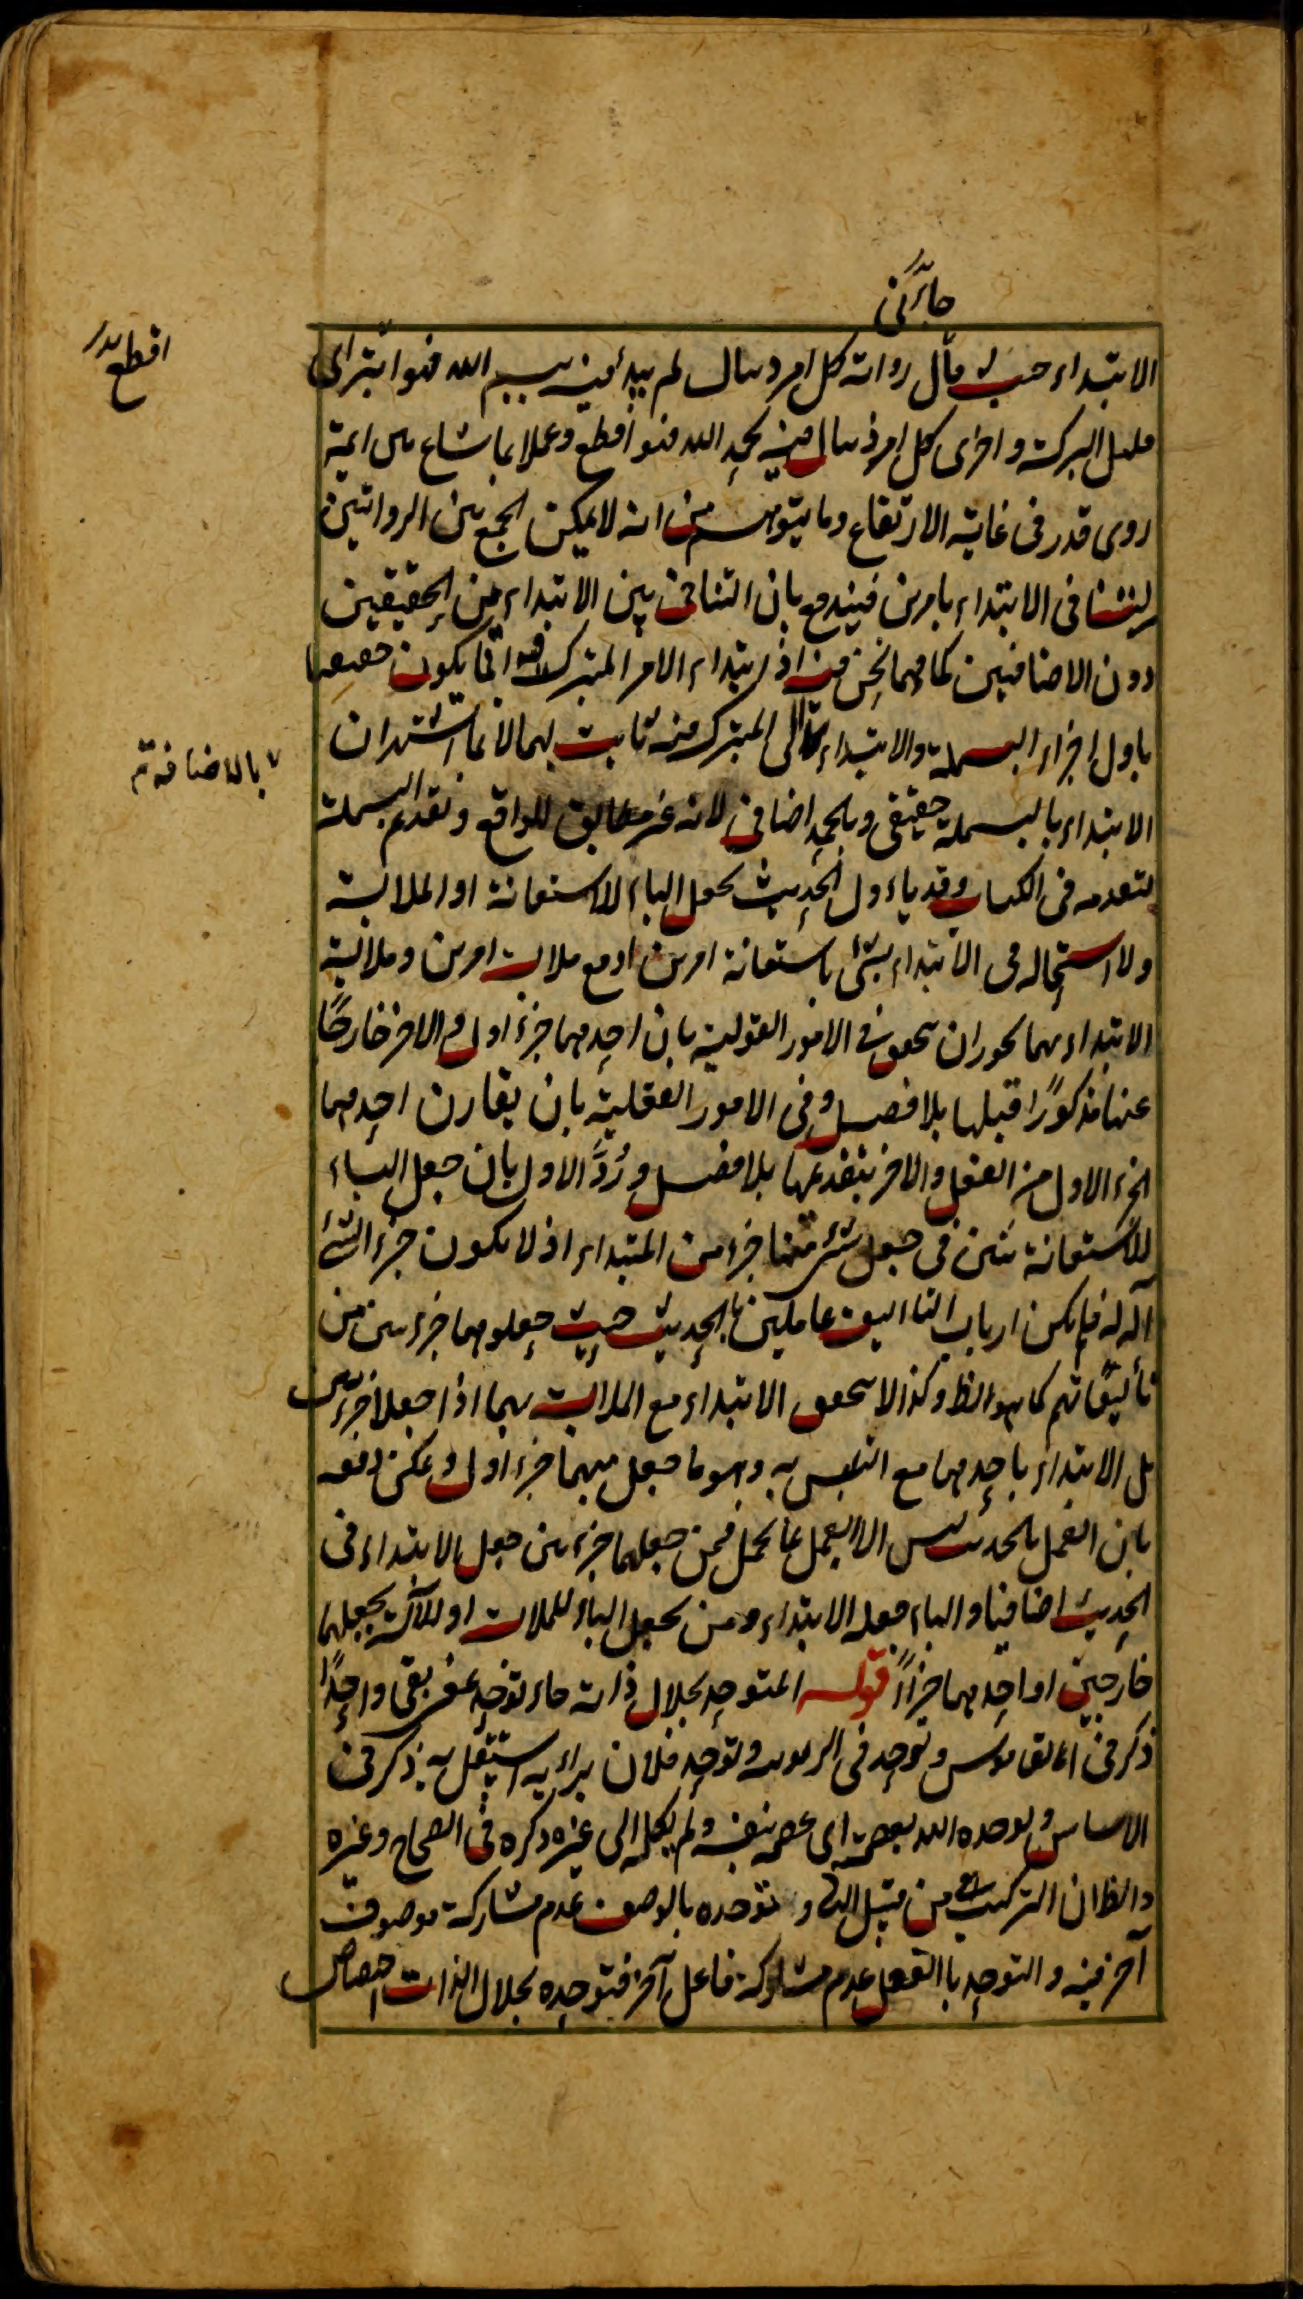 جاء في
الابتداء حيث قال رواته كل امر ذي بال لم يبدأ فيه ببسم الله فهو ابتر اي
اقطع
قليل البركة و اخرى كل امر ذي بال فيه بحمد الله فهو اقطع وعملا بما شاع من ائمة
روى قدر في غاية الارتفاع وما يتوهم من انه لا يمكن الجمع بين الروايتين
في الابتداء بامرين فيندفع بان التنافي بين الابتداء ين الحقيقيين
دون الاضافيين كما فيما نحن فيه اذ ابتداء الامر المتبرك فيه انما يكون حقيقيا
باول اجزاء البسملة والابتداء الى المتبرك منه ثابت لهما لا بما اشتهر ان
بالاضافة
الابتداء بالبسملة حقيقي وبالحمد اضافي لانه غير مطابق للواقع و تقديم البسملة
لتقدمه في الكتاب وقد ياءول الحديث بجعل الباء للاستعانة او الملابسة
ولا استحالة في الابتداء بشئ باستعانة امرين او مع ملابسة امرين وملابسة
الابتداء بهما يجوز ان يتحقق في الامور القولية بان احدهما جزءا اول والاخر خارجًا
عنها مذكورًا قبلها بلا فصل وفي الامور الفعلية بان يقارن احدهما
الجزء الاول من الفعل والاخر يتقدمها بلا فصل و رُدَّ الاول بان جعل الباء
للاستعانة في جعل شئ منها جزء من المبتداء اذ لا يكون جزء الشئ
آلة له فلم يكن ارباب التاليف عاملين بالحديث حيث جعلوهما جزءين من
تأليفاتهم كما هو الظ وكذا لا يتحقق الابتداء مع الملابسة بهما اذا جعلا جزءين
بل الابتداء باحدهما مع التلبس به وهو ما جعل منهما جزء اول و يمكن دفعه
بان العمل بالحديث ليس الا العمل بما يحمل فمن جعلهما جزءين جعل الابتداء في
الحديث اضافيا والباء صلة الابتداء ومن يجعل الباء للملابسة او للآلة يجعلهما
خارجين او احدهما جزءًا قوله المتوحد بجلال ذاته جاء توحد بمعنى بقى واحدًا
ذكر في القاموس وتوحد في الربوبية وتوحد فلان برايه استقل به ذكر في
الاساس و توحده الله بعصمته اي عصمه بنفسه ولم يكله الى غيره ذكره في الصحاح وغيره
والظ ان التركيب من قبيل الثاني و توحده بالوصف عدم مشاركة موصوف
آخر فيه و التوحد بالفعل عدم مشاركة فاعل آخر فتوحده بجلال الذات اختصاص